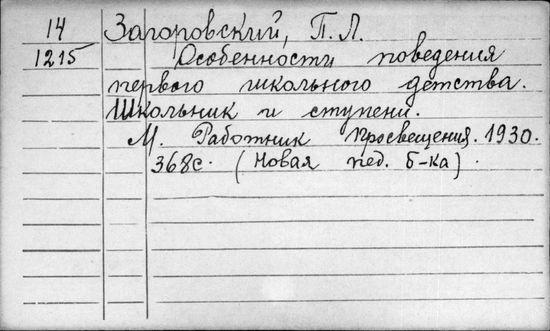 14 Загоровский, П. Л.
1215 Особенности поведения
первого школьного детства.
Школьник и ступени.
М. Работник просвещения. 1930.
368с. (Новая пед. б-ка).